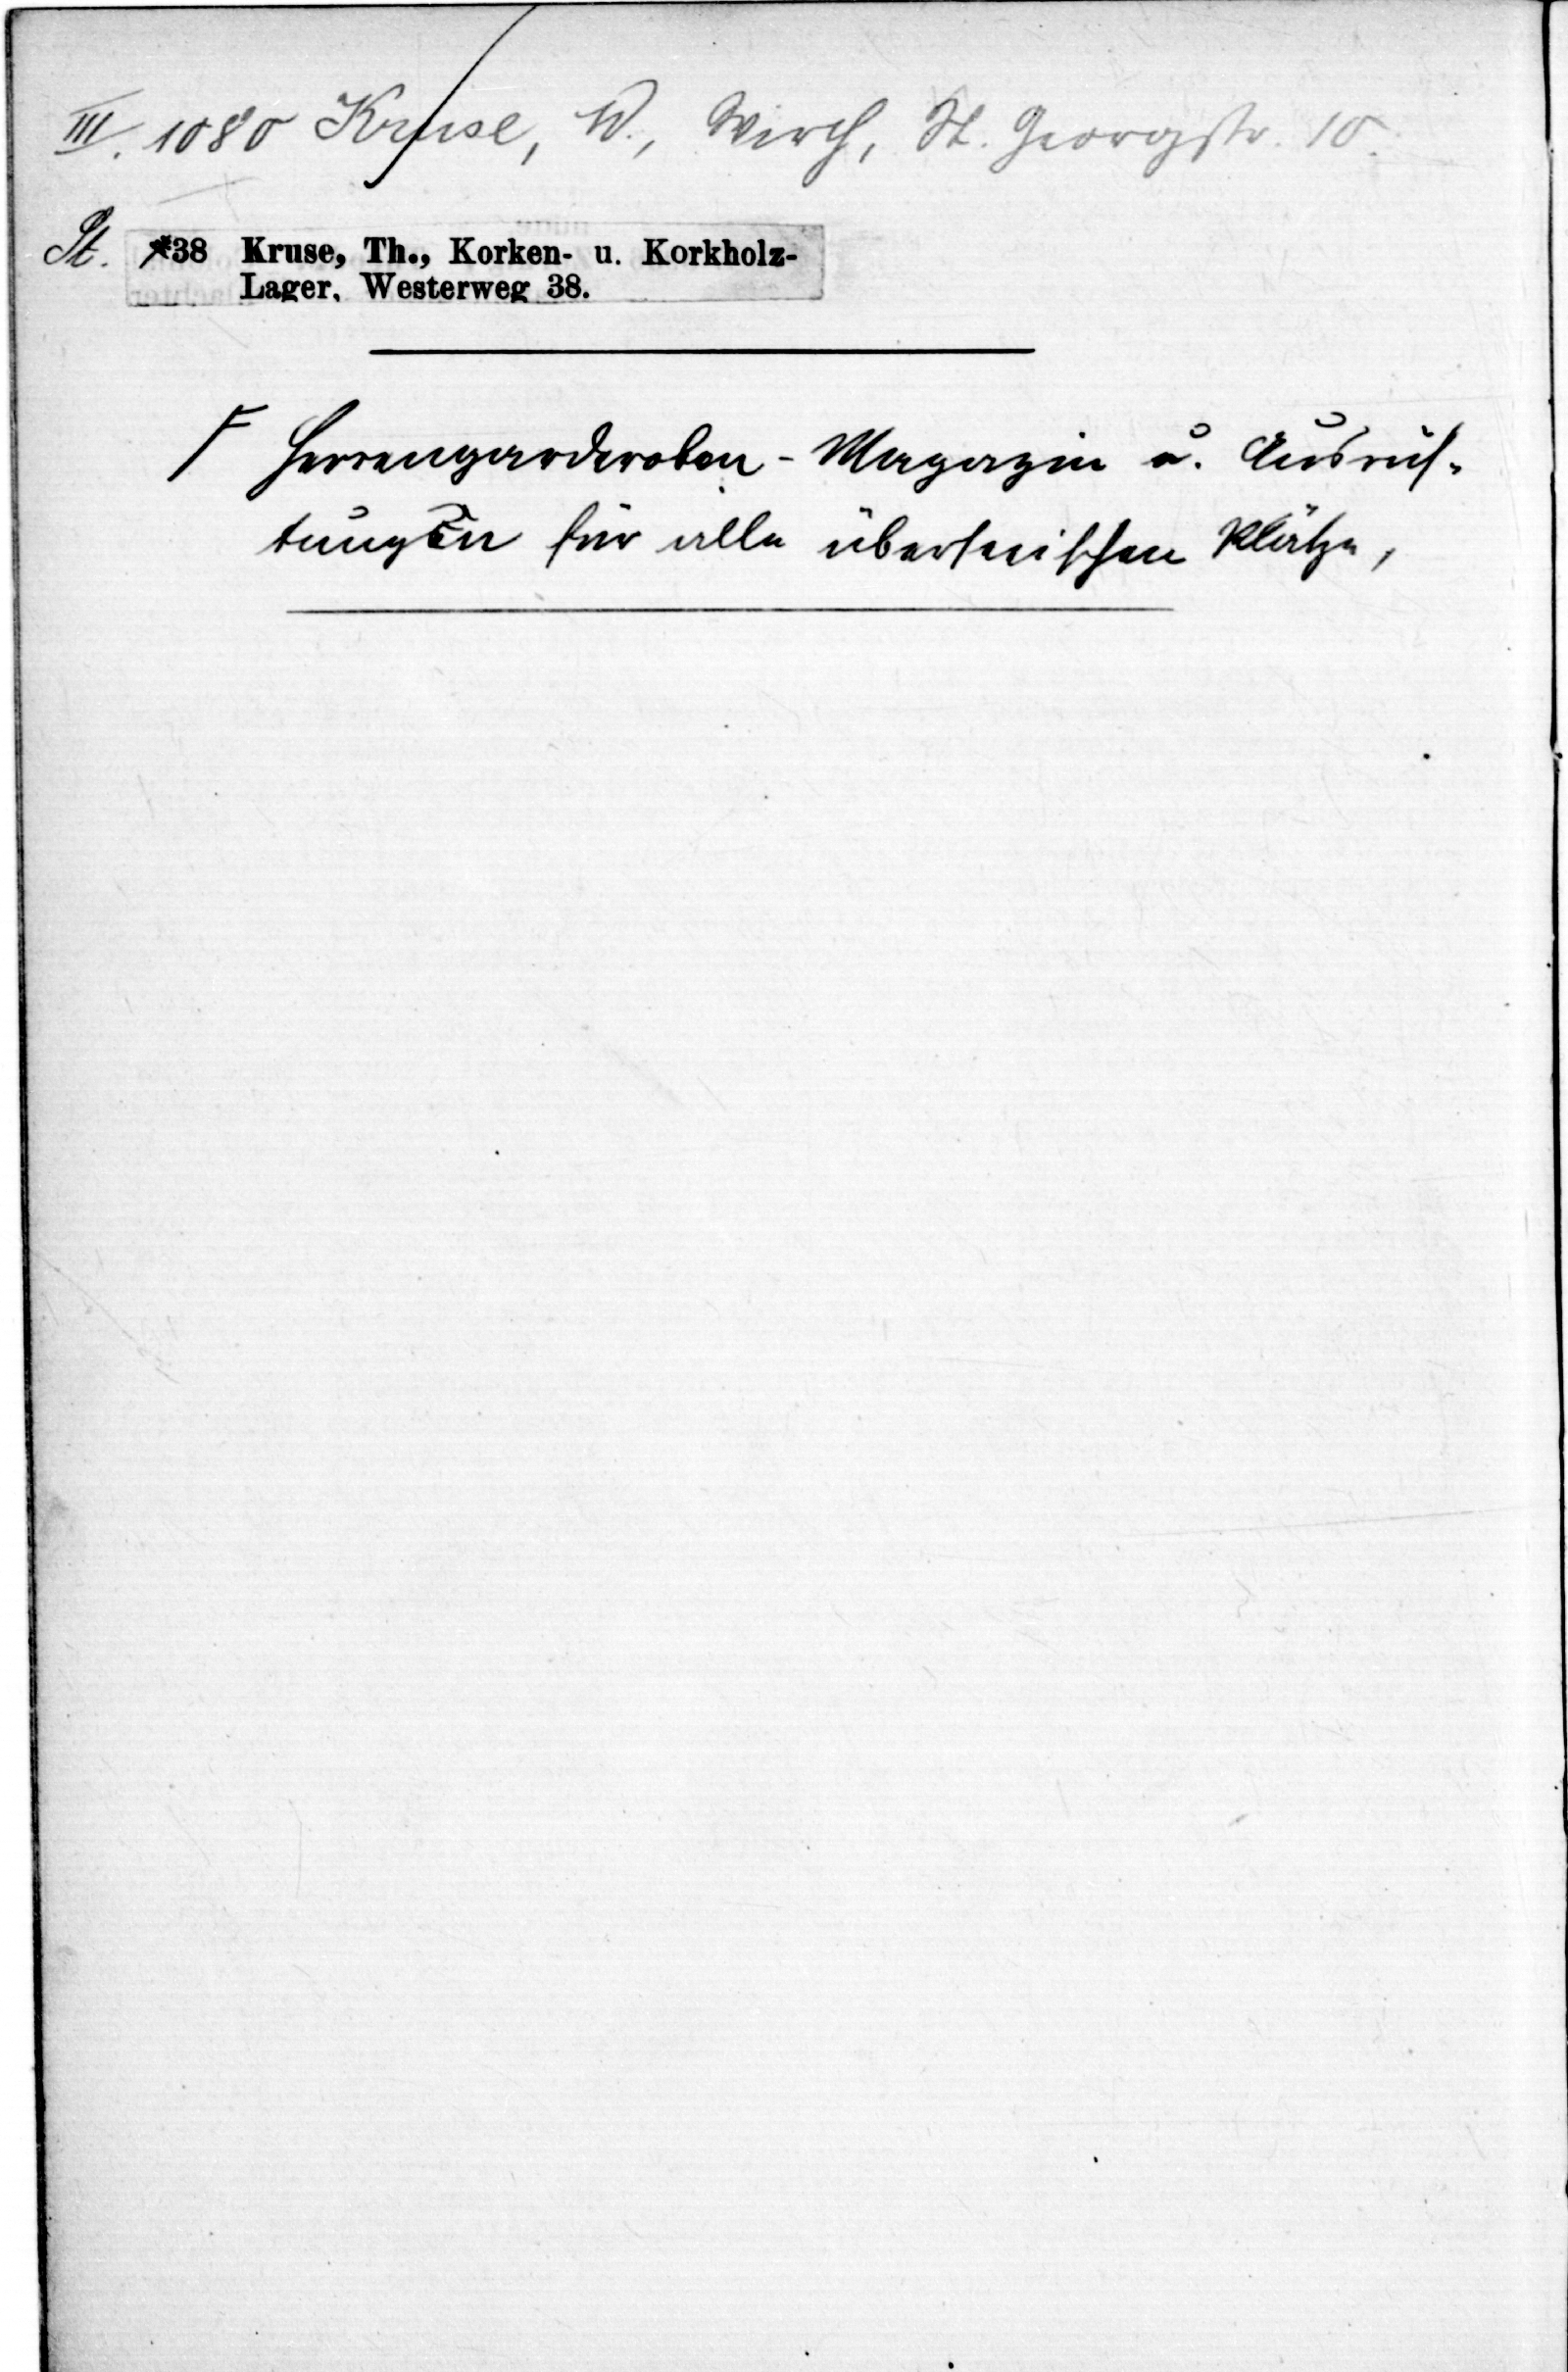 III. 1080 Kruse, W., Wirth, St. Georgstr. 10.
St. *38 Kruse, Th., Korken- u. Korkholz-
Lager, Westerweg 38.
F Herrengarderoben-Magazin u. Ausrüs-
tungen für alle überseeischen Plätze,